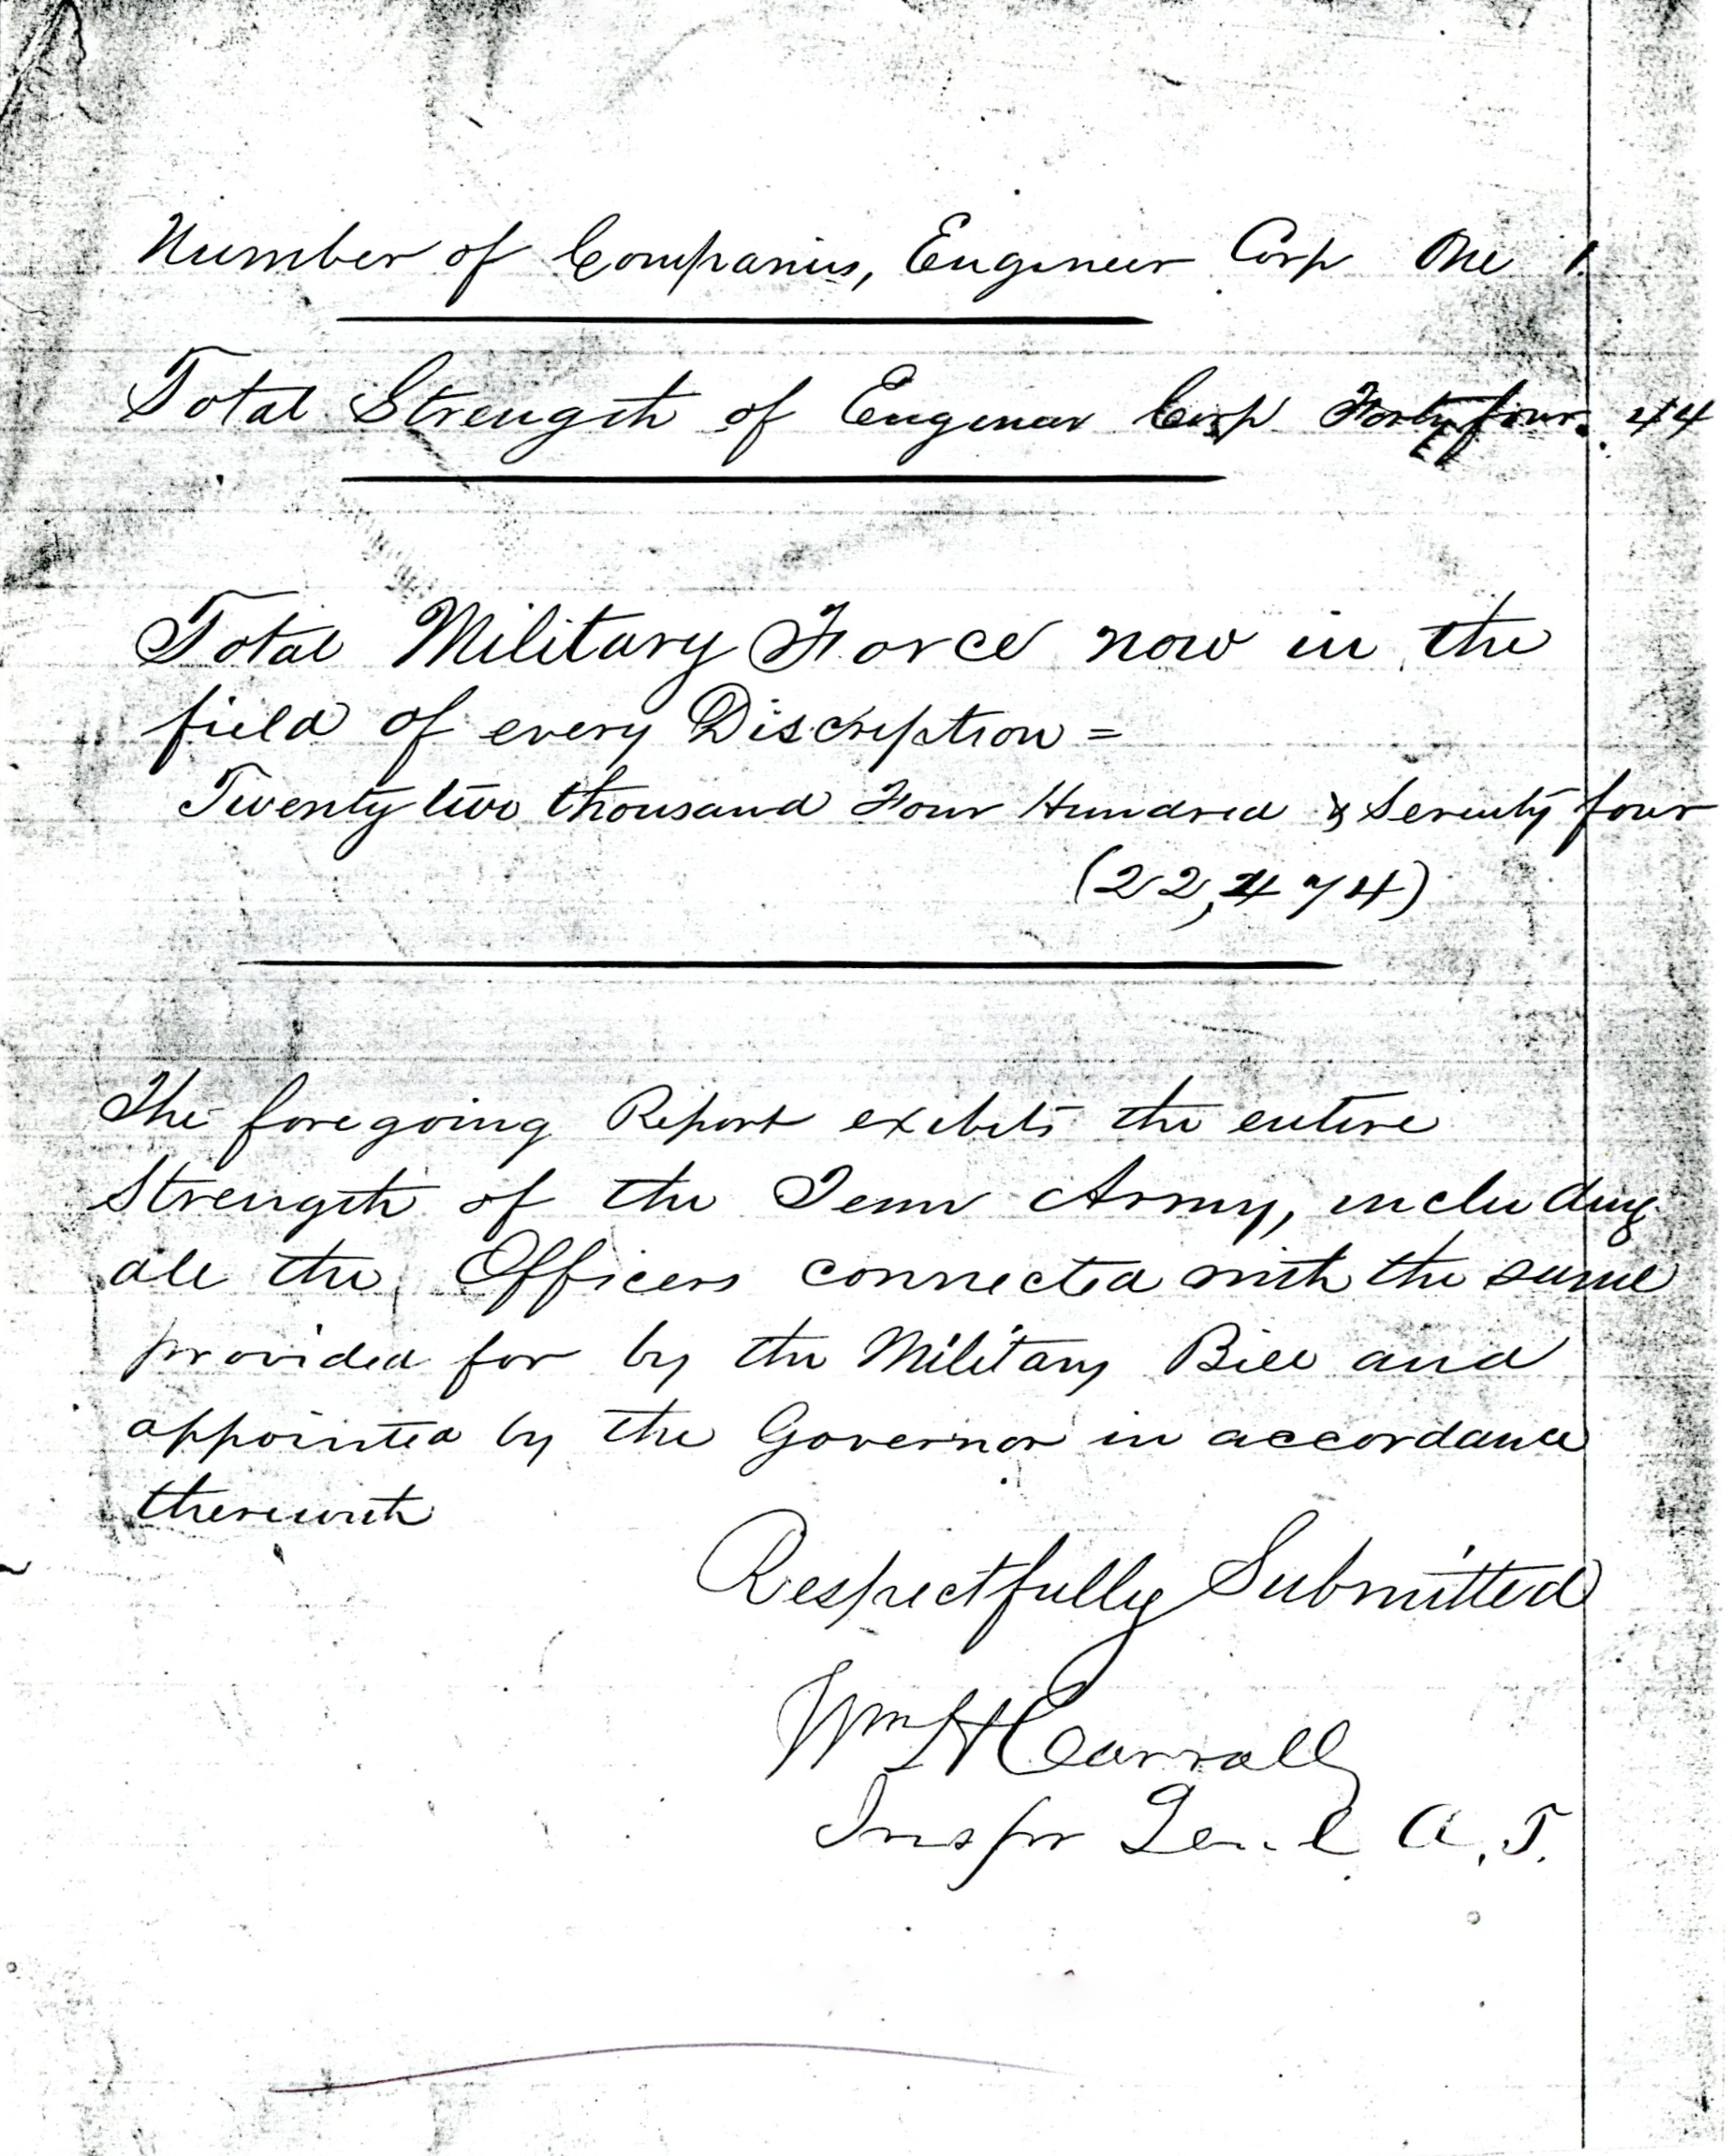 Number of Companies, Engineer Corp One 1.
Total Strength of Engineer Corp Forty four. 44
Total Military Force now in the
field of every Discription =
Twenty two thousand Four Hundred & Seventy four
(22,474)
The foregoing Report exibits the entire
Strength of the Tenn Army, including
all the Officers connected with the same
provided for by the Military Bill and
appointed by the Governor in accordance
therewith
Respectfully Submitted
Wm H Carroll
Inspr Genl A. T.